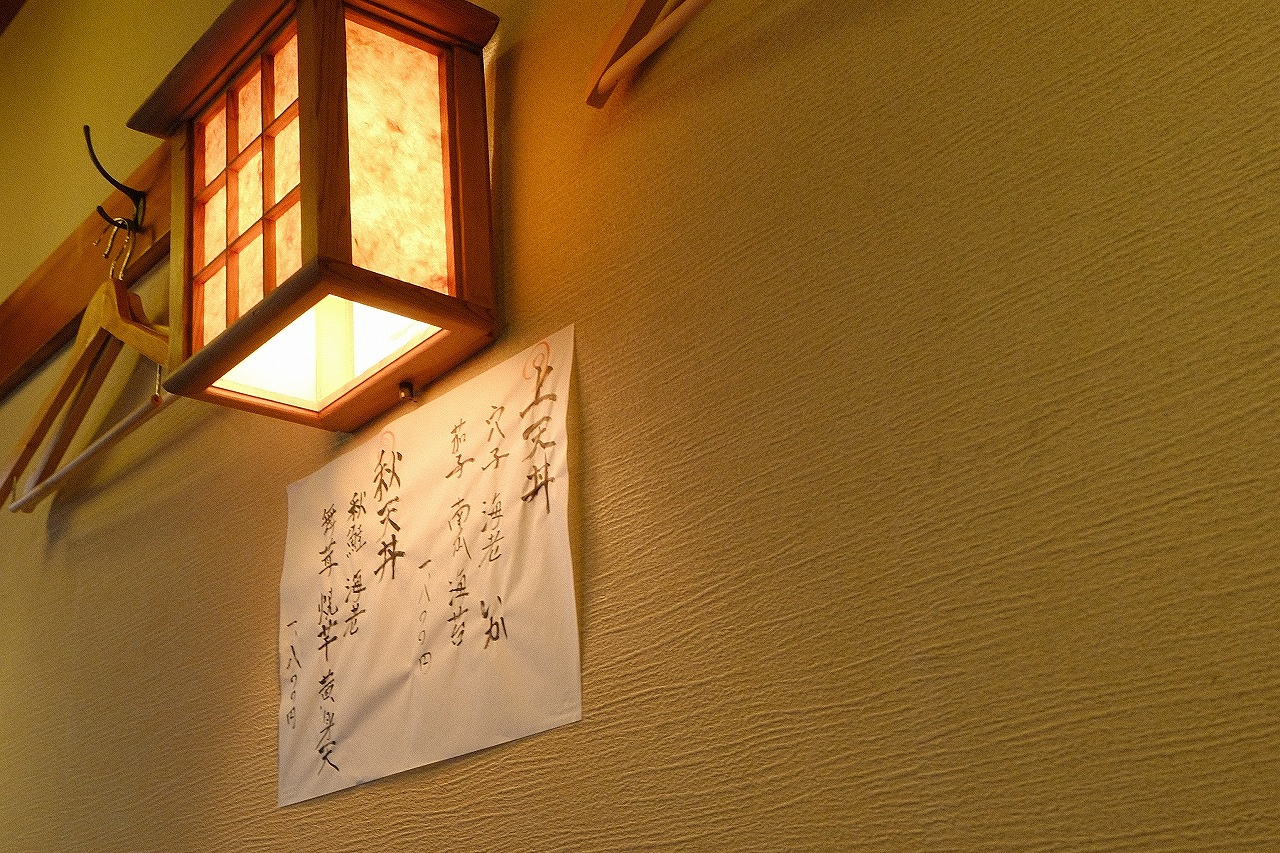 上天丼
穴子 海老 いか
茄子 南瓜 海苔
一、八〇〇円
秋天丼
秋鮭 海老
舞茸 焼芋 黄身天
一、八〇〇円